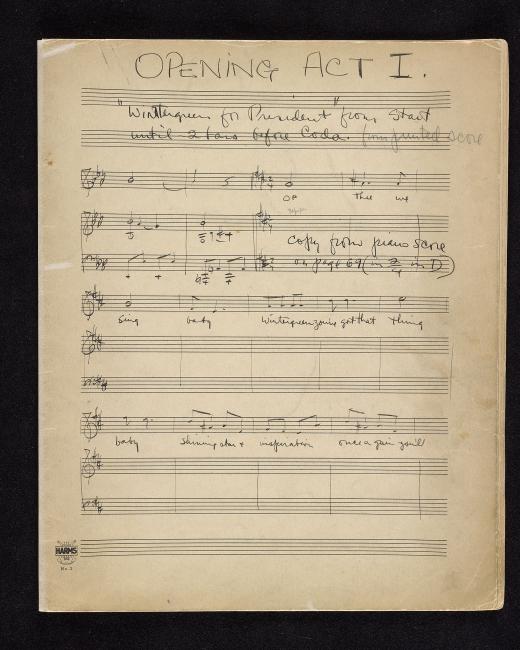 OPENING ACT I.
"Wintergreen for President" from Start
until 2 bars before Coda. from printed score
Of thee we
Copy from piano score
on page 69 (in 2/4 in D)
Sing baby Wintergreen you've got that thing
baby Shining star & inspiration once again you'll
HARMS
No. 3